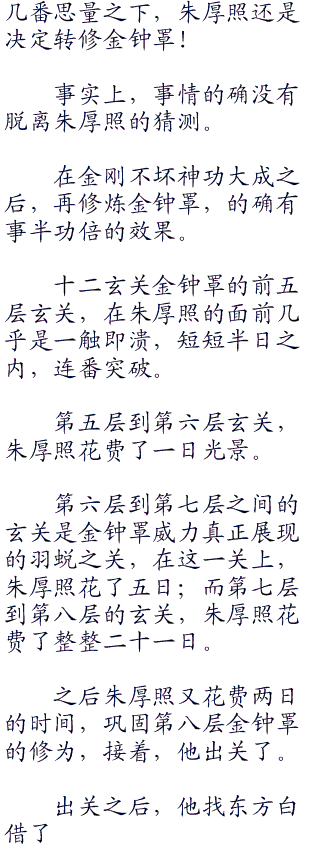 几番思量之下，朱厚照还是
决定转修金钟罩！
事实上，事情的确没有
脱离朱厚照的猜测。
在金刚不坏神功大成之
后，再修炼金钟罩，的确有
事半功倍的效果。
十二玄关金钟罩的前五
层玄关，在朱厚照的面前几
乎是一触即溃，短短半日之
内，连番突破。
第五层到第六层玄关，
朱厚照花费了一日光景。
第六层到第七层之间的
玄关是金钟罩威力真正展现
的羽蜕之关，在这一关上，
朱厚照花了五日；而第七层
到第八层的玄关，朱厚照花
费了整整二十一日。
之后朱厚照又花费两日
的时间，巩固第八层金钟罩
的修为，接着，他出关了。
出关之后，他找东方白
借了